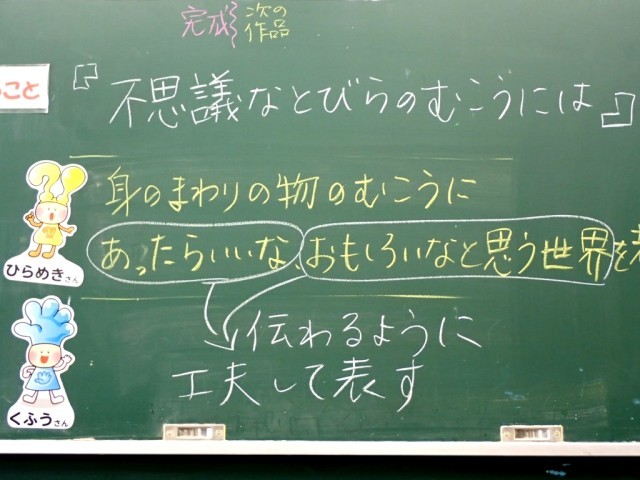 完成 次の
作品
こと
『不思議なとびらのむこうには』
身のまわりの物のむこうに
あったらいいな、おもしろいなと思う世界を
ひらめきさん
伝わるように
工夫して表す
くふうさん